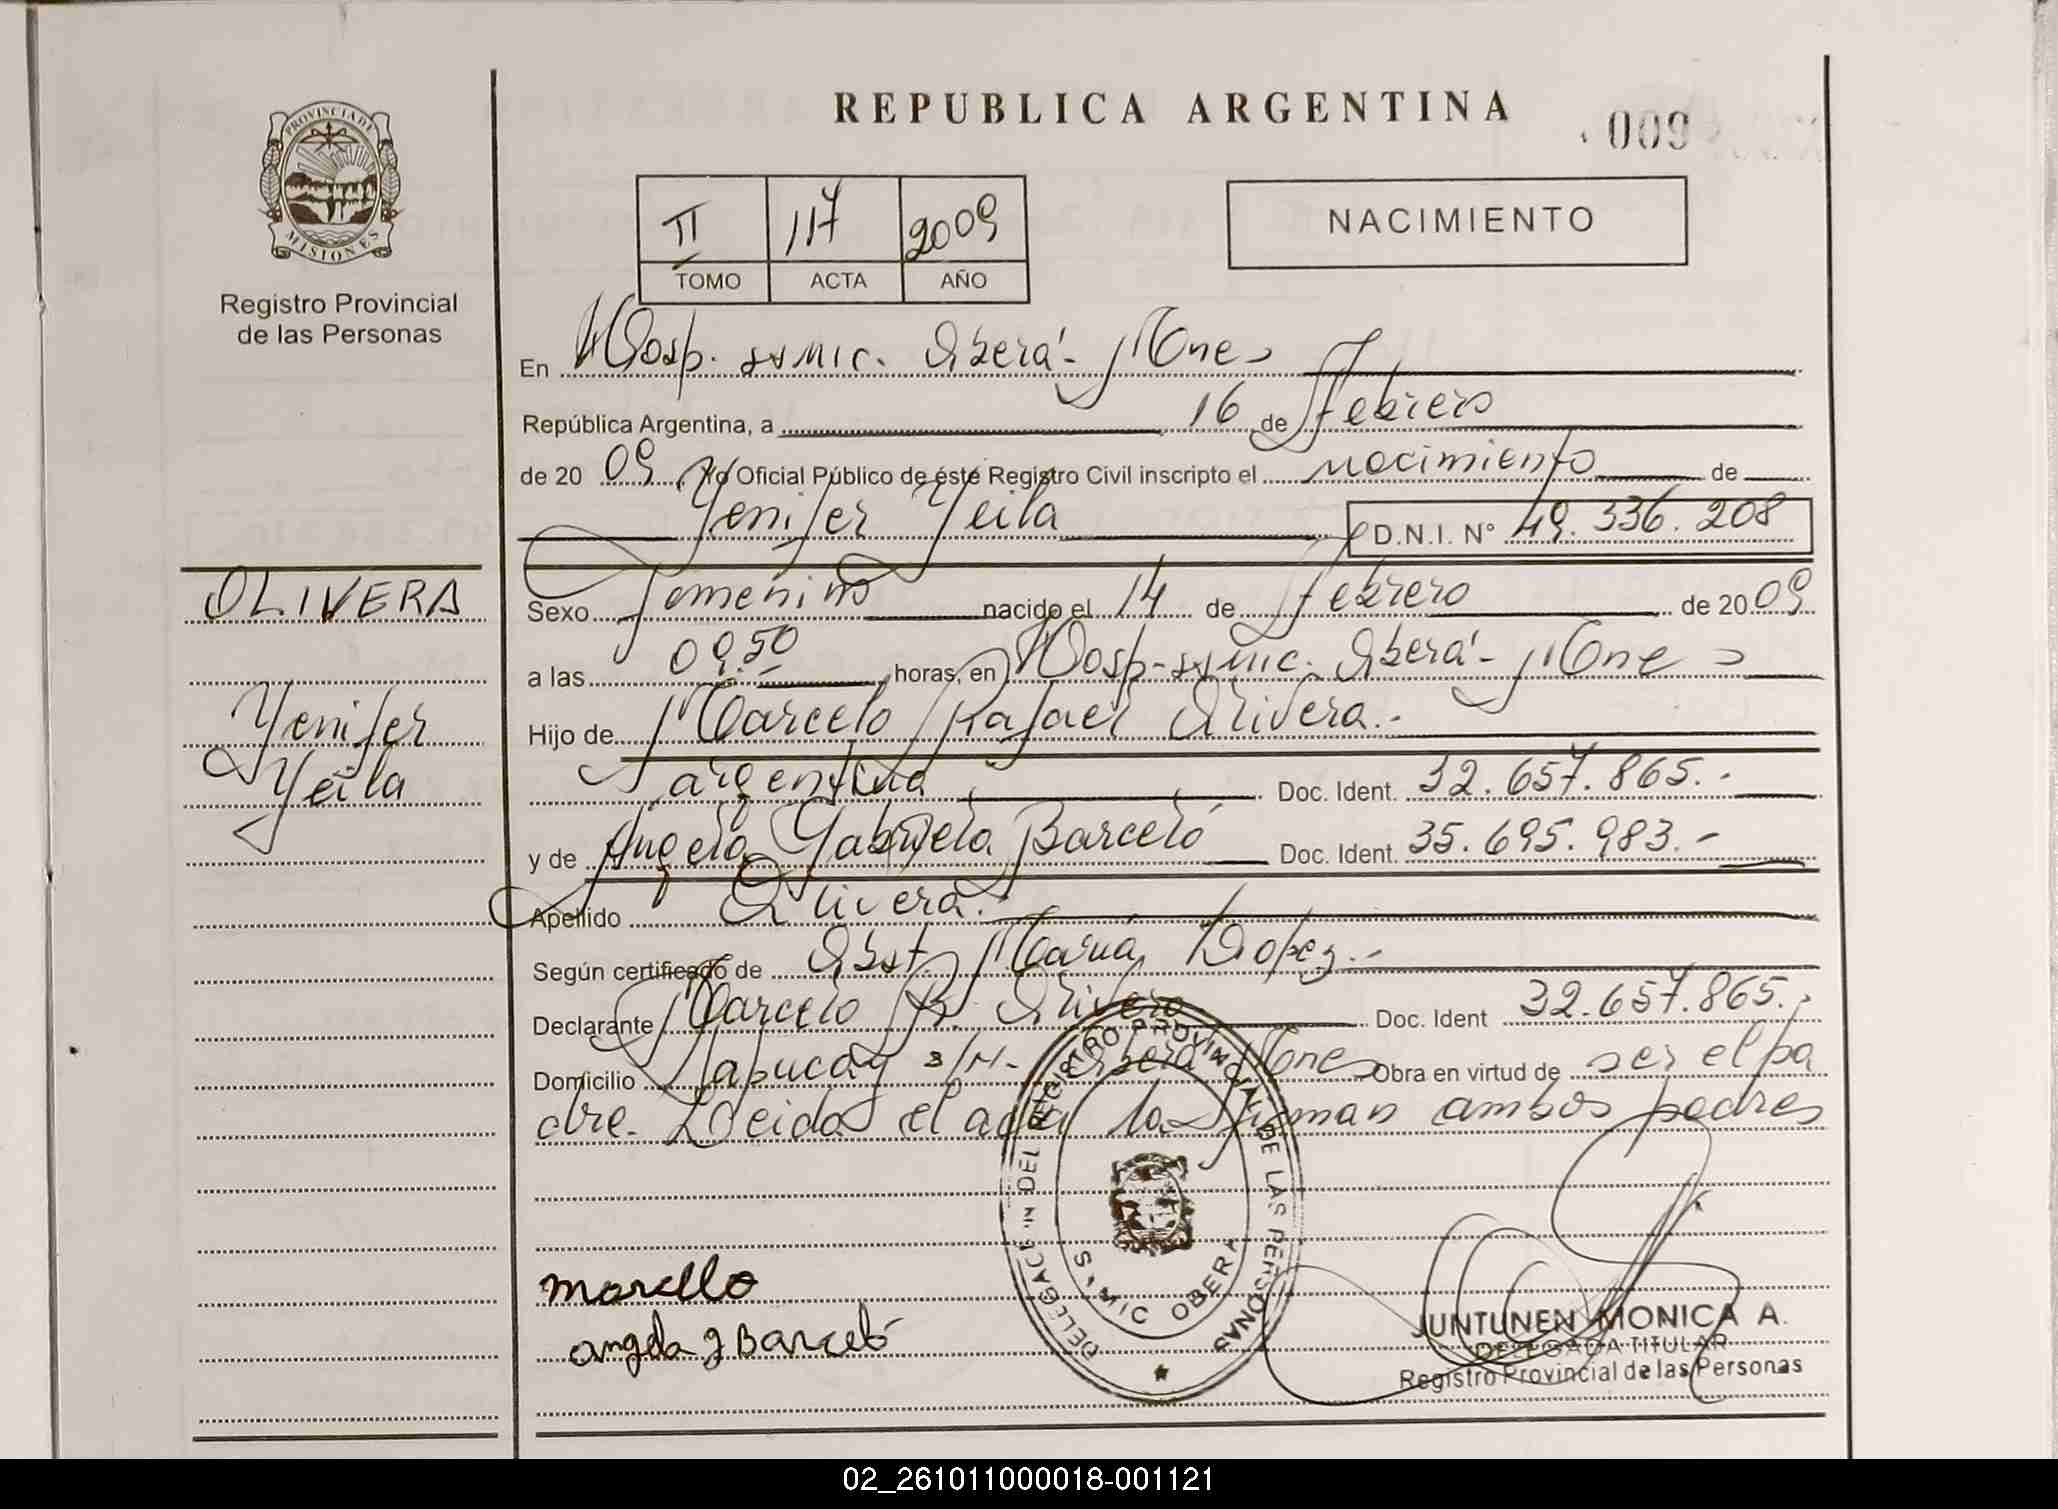 REPUBLICA ARGENTINA
009
PROVINCIA DE
MISIONES
Registro Provincial
de las Personas
II 117 2009
TOMO ACTA AÑO
NACIMIENTO
En Hosp. samic. Oberá - Mnes
República Argentina, a 16 de Febrero
de 20 09, Yo Oficial Público de éste Registro Civil inscripto el nacimiento de
Yenifer Yeila D.N.I. Nº 49.336.208
OLIVERA
Yenifer
Yeila
Sexo femenino nacido el 14 de Febrero de 20 09
a las 09.50 horas, en Hosp - samic. Oberá - Mnes
Hijo de Marcelo Rafael Olivera.-
argentina Doc. Ident. 32.657.865.-
y de Angela Gabriela Barceló Doc. Ident. 35.695.983.-
Apellido Olivera.-
Según certificado de Obst. María Lopez.-
Declarante Marcelo R. Olivera Doc. Ident 32.657.865.-
Domicilio s/n. Oberá Mnes Obra en virtud de ser el pa
dre. Leida el acta la firman ambos padres
DELEGAC IN DEL REGISTRO PROVINCIAL DE LAS PERSONAS
SAMIC OBERA
Marcelo
angela g Barceló
JUNTUNEN MONICA A.
DELEGADA TITULAR
Registro Provincial de las Personas
02_261011000018-001121